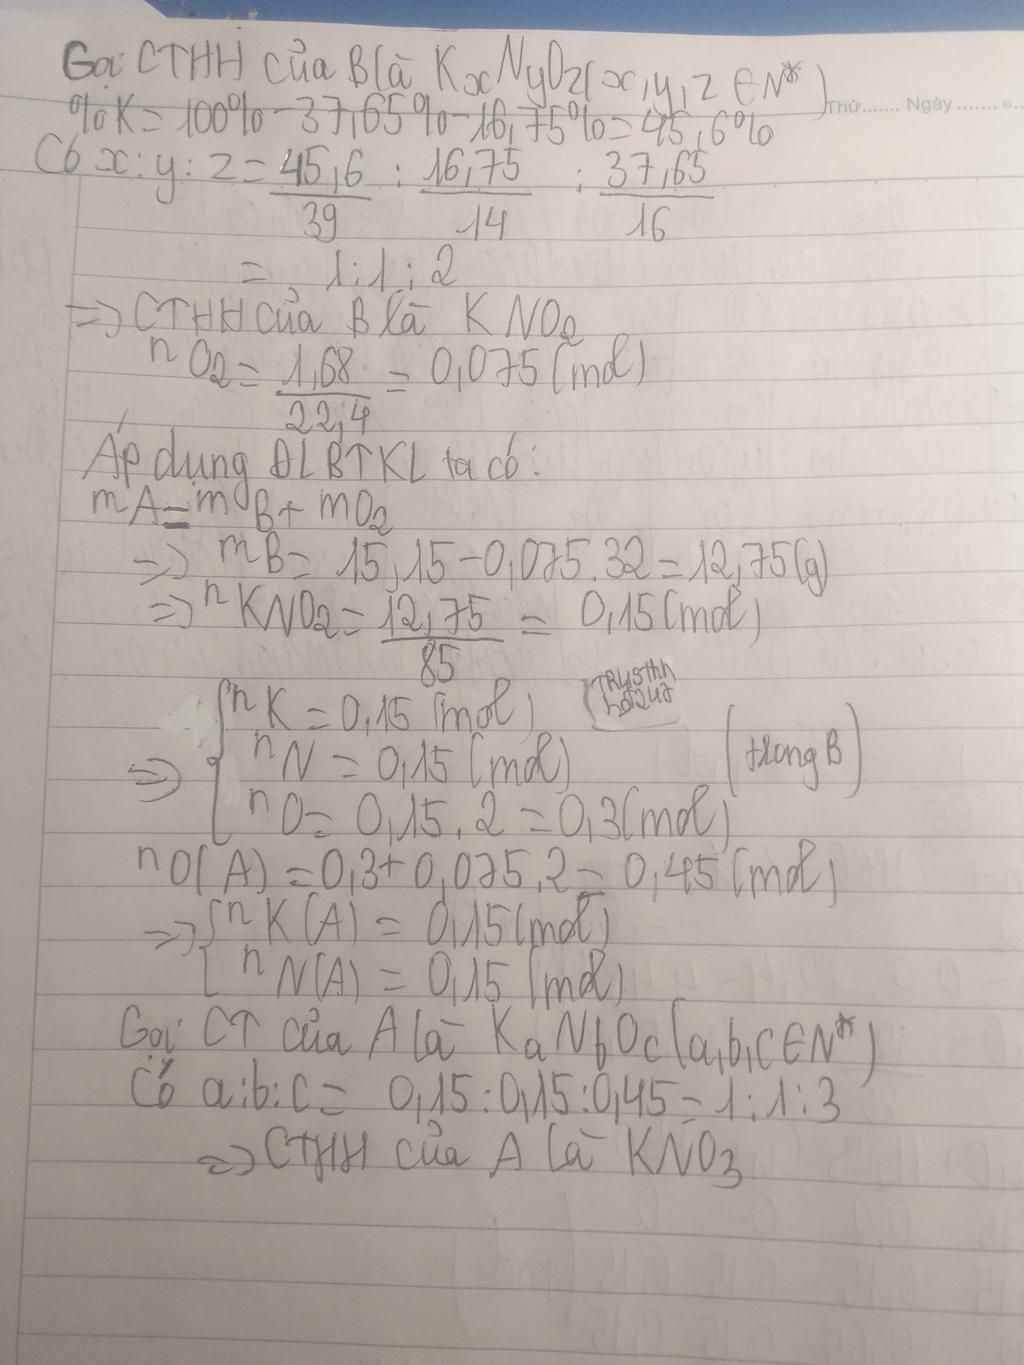 Gọi CTHH của B là KxNyOz(x,y,z ∈ N*)
Thứ....... Ngày .......
%K = 100% - 37,65% - 16,75% = 45,6%
Có x : y : z = 45,6/39 : 16,75/14 : 37,65/16
= 1 : 1 : 2
=> CTHH của B là KNO2
nO2 = 1,68/22,4 = 0,075 (mol)
Áp dụng ĐLBTKL ta có:
mA = mB + mO2
=> mB = 15,15 - 0,075.32 = 12,75(g)
=> nKNO2 = 12,75/85 = 0,15(mol)
=> { nK = 0,15 (mol)
nN = 0,15 (mol) (trong B)
nO = 0,15.2 = 0,3(mol)
nO(A) = 0,3 + 0,075.2 = 0,45 (mol)
=> { nK(A) = 0,15(mol)
nN(A) = 0,15 (mol)
Gọi CT của A là KaNbOc (a,b,c ∈ N*)
Có a:b:c = 0,15 : 0,15 : 0,45 = 1 : 1 : 3
=> CTHH của A là KNO3